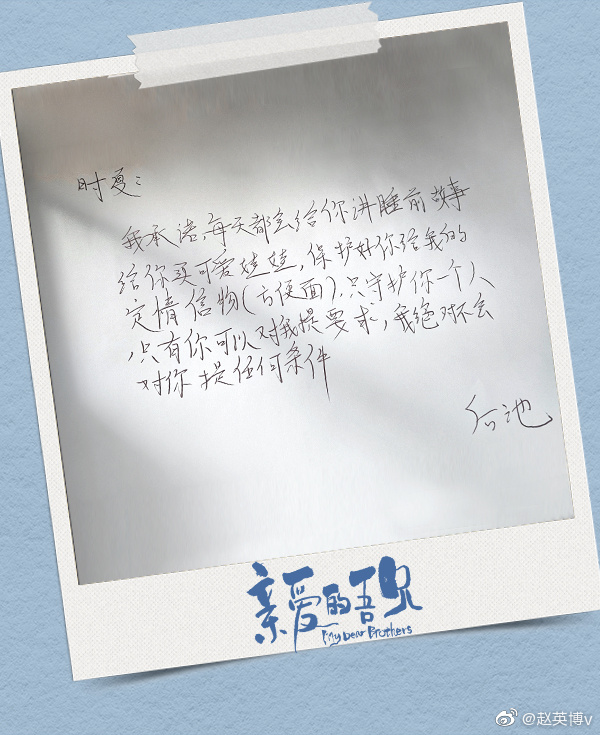 时夏：
我承诺，每天都会给你讲睡前故事
给你买可爱娃娃，保护好你给我的
定情信物（方便面），只守护你一个人
，只有你可以对我提要求，我绝对不会
对你提任何条件
后池
亲爱的吾兄
My Dear Brothers
@赵英博v